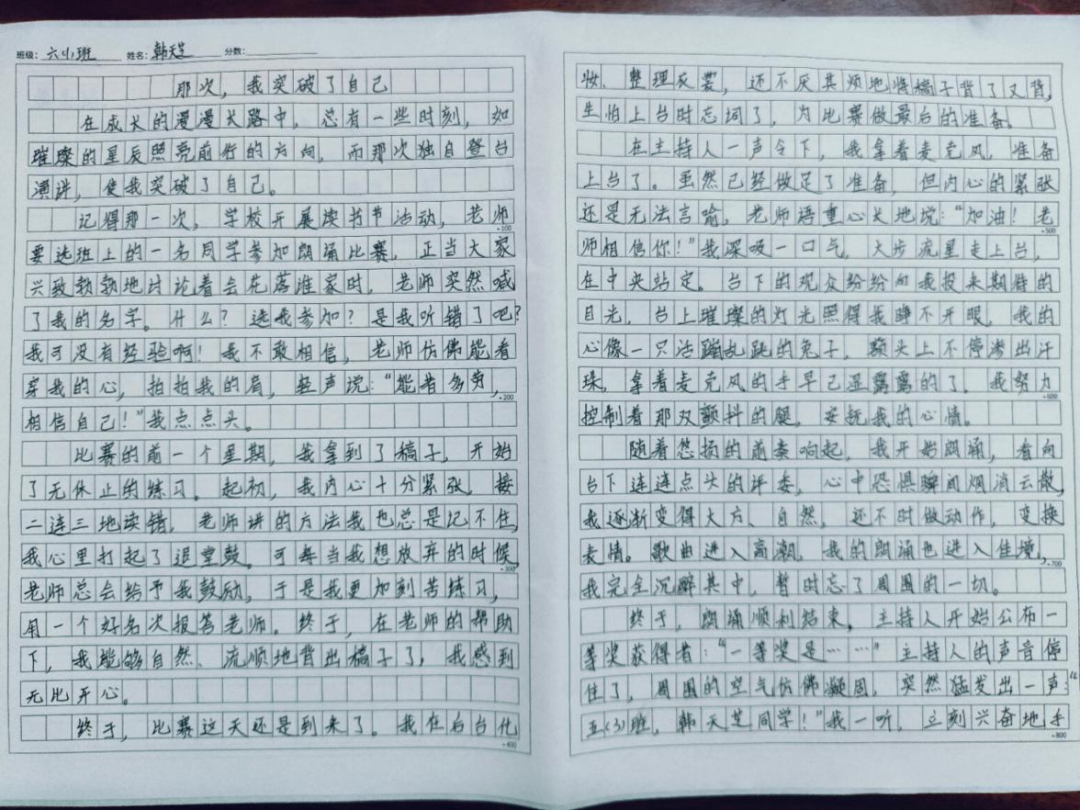 班级：六(1)班 姓名：韩天芝 分数：
那次，我突破了自己
在成长的漫漫长路中，总有一些时刻，如
璀璨的星辰照亮前行的方向，而那次独自登台
演讲，使我突破了自己。
记得那一次，学校开展读书节活动，老师
+100
要选班上的一名同学参加朗诵比赛，正当大家
兴致勃勃地讨论着会花落谁家时，老师突然喊
了我的名字。什么？选我参加？是我听错了吧？
我可没有经验啊！我不敢相信，老师仿佛能看
穿我的心，拍拍我的肩，轻声说：“能者多劳，
+200
相信自己！”我点点头。
比赛的前一个星期，我拿到了稿子，开始
了无休止的练习。起初，我内心十分紧张，接
二连三地读错，老师讲的方法我也总是记不住，
我心里打起了退堂鼓。可每当我想放弃的时候，
+300
老师总会给予我鼓励，于是我更加刻苦练习，
用一个好名次报答老师。终于，在老师的帮助
下，我能够自然、流顺地背出稿子了，我感到
无比开心。
终于，比赛这天还是到来了。我在后台化
+400
妆、整理衣裳，还不厌其烦地将稿子背了又背，
生怕上台时忘词了，为比赛做最后的准备。
在主持人一声令下，我拿着麦克风，准备
上台了。虽然已经做足了准备，但内心的紧张
还是无法言喻，老师语重心长地说：“加油！老
+500
师相信你！”我深吸一口气，大步流星走上台，
在中央站定。台下的观众纷纷向我投来期待的
目光，台上璀璨的灯光照得我睁不开眼，我的
心像一只活蹦乱跳的兔子，额头上不停渗出汗
珠，拿着麦克风的手早已湿露露的了，我努力
+600
控制着那双颤抖的腿，安抚我的心情。
随着悠扬的前奏响起，我开始朗诵，看向
台下连连点头的评委，心中恐惧瞬间烟消云散，
我逐渐变得大方、自然，还不时做动作，变换
表情。歌曲进入高潮，我的朗诵也进入佳境，
+700
我完全沉醉其中，暂时忘了周围的一切。
终于，朗诵顺利结束，主持人开始公布一
等奖获得者：“一等奖是……”主持人的声音停
住了，周围的空气仿佛凝固，突然猛发出一声：“
五(3)班，韩天芝同学！”我一听，立刻兴奋地手
+800